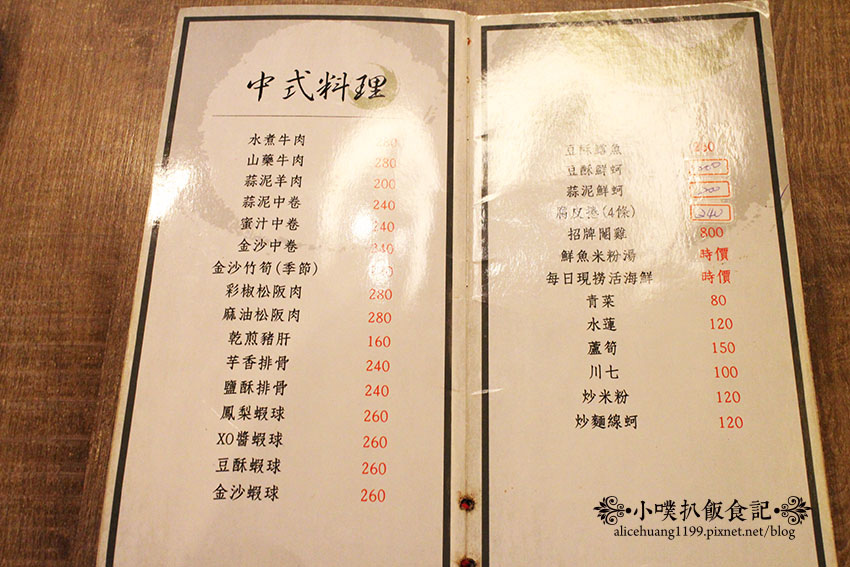 中式料理
水煮牛肉 280
山藥牛肉 280
蒜泥羊肉 200
蒜泥中卷 240
蜜汁中卷 240
金沙中卷 240
金沙竹筍(季節)
彩椒松阪肉 280
麻油松阪肉 280
乾煎豬肝 160
芋香排骨 240
鹽酥排骨 240
鳳梨蝦球 260
XO醬蝦球 260
豆酥蝦球 260
金沙蝦球 260
豆酥鱈魚
豆酥鮮蚵
蒜泥鮮蚵
腐皮捲(4條) 240
招牌閹雞 800
鮮魚米粉湯 時價
每日現撈活海鮮 時價
青菜 80
水蓮 120
蘆筍 150
川七 100
炒米粉 120
炒麵線蚵 120
小噗扒飯食記
alicehuang1199.pixnet.net/blog